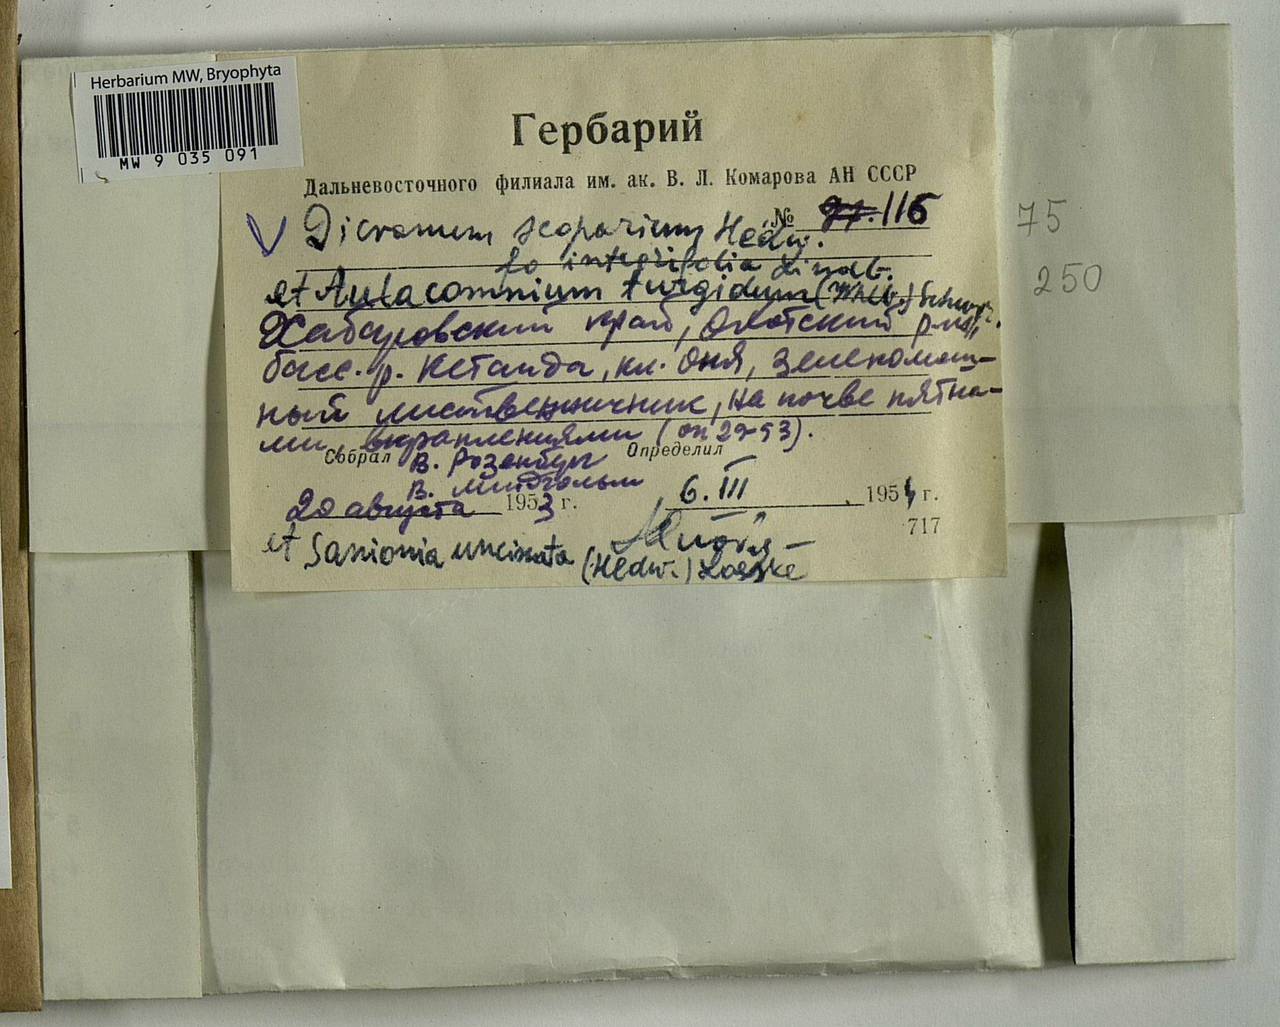 Herbarium MW, Bryophyta
MW 9 035 091
Гербарий
Дальневосточного филиала им. ак. В. Л. Комарова АН СССР
№ 116
V Dicranum scoparium Hedw.
fo integrifolia Lindb.
et Aulacomnium turgidum (Whlb.) Schwgr.
Хабаровский край, Охотский р-н,
басс. р. Кетанда, кл. Оня, зеленомош-
ный лиственничник, на почве пятна-
ми, вкраплениями (оп 29-53).
Собрал В. Розенберг Определил
В.
20 августа 1953 г. 6. III 1954 г.
717
et Sanionia uncinata (Hedw.) Loeske
75
250